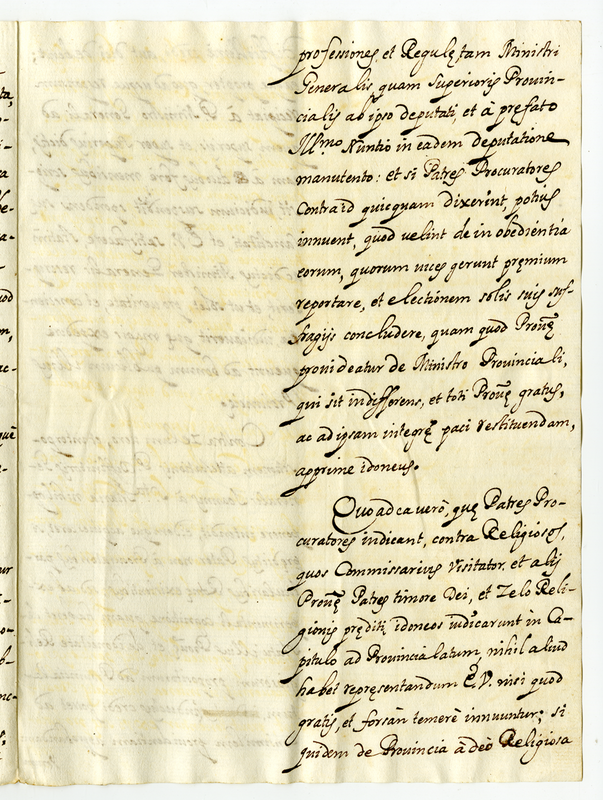 professiones, et Regulę, tam Ministri
Generalis quam Superioris Provin-
cialis ab ipso deputati, et à pręfato
Ill.mo Nuntio in eadem deputatione
manutento: et si Patres Procuratores
Contra id quicquam dixerint, potius
innuent, quòd velint de in obedientia
eorum, quorum vices gerunt pręmium
reportare, et electionem solis suis suf-
fragijs concludere, quam quod Prouę
prouideatur de Ministro Prouinciali,
qui sit indifferens, et toti Prouę gratus,
ac ad ipsam integrę paci restituendam,
apprime idoneus.
Quo ad ea verò, quę Patres Pro-
curatores indicant, contra Religiosos,
quos Commissarius Visitator, et alij
Prouę Patres timore Dei, et Zelo Reli-
gionis pręditi, idoneos iudicarunt in Ca-
pitulo ad Prouincialatum, nihil aliud
habet repręsentandum E.V. nisi quod
gratis, et forsàn temerè innuuntur; si
quidem de Prouincia adeò Religiosa